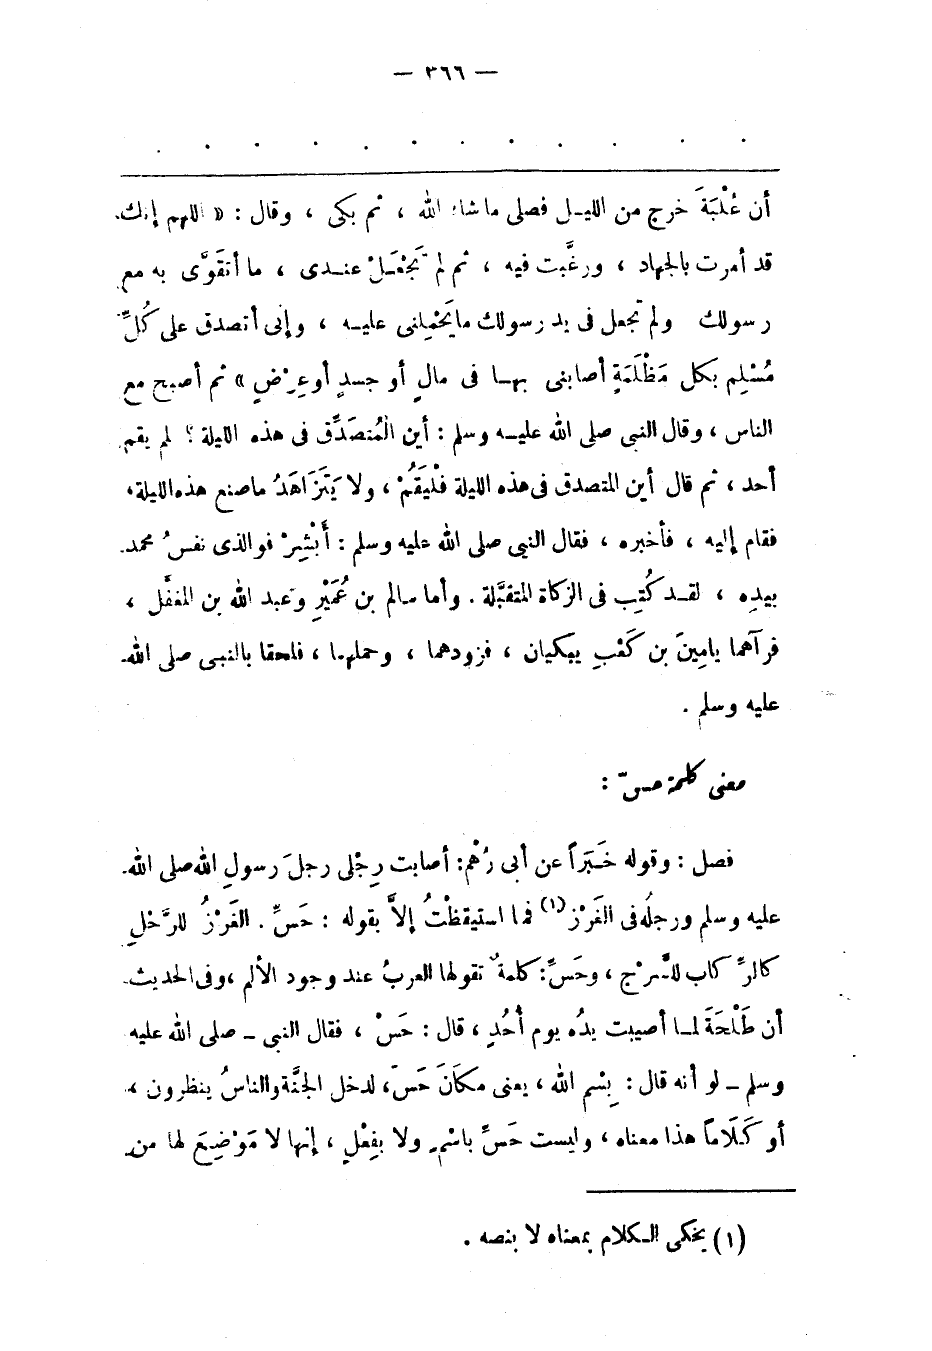 — ٣٦٦ —
. . . . . . . . . . . .
أن عُلْبَةَ خرج من الليـل فصلى ما شاء الله ، ثم بكى ، وقال : « اللهم إنك
قد أمرت بالجهاد ، ورغَّبت فيه ، ثم لم تَجْعَـلْ عنـدى ، ما أتقَوَّى به مع
رسولك ولم تجعل فى يد رسولك ما يَحْمِلنى عليـه ، وإنى أتصدق على كُلِّ
مُسْلِم بكل مَظْلَمَةٍ أصابنى بهـا فى مالٍ أو جسدٍ أو عِرْضٍ » ثم أصبح مع
الناس ، وقال النبى صلى الله عليـه وسلم : أين الْمُتصَدِّق فى هذه الليلة ؟ لم يقم
أحد ، ثم قال أين المتصدق فى هذه الليلة فلْيَقُمْ ، ولا يَتَزَاهَدُ ما صنع هذه الليلة،
فقام إليه ، فأخبره ، فقال النبى صلى الله عليه وسلم : أَبْشِرْ فوالذى نفسُ محمد
بيدِه ، لقـد كُتِب فى الزكاة المتقبَّلة . وأما سالم بن عُمَيْرٍ وعبد الله بن المغفَّل ،
فرآهما يامِينَ بن كَعْبٍ يبكيان ، فزودهما ، وحملهما ، فلحقا بالنبـى صلى الله
عليه وسلم .
معنى كلمة حسّ :
فصل : وقوله خَـبَراً عن أبى رُهْم: أصابت رِجْلى رجلَ رسولِ الله صلى الله
عليه وسلم ورجلُه فى الغَرْزِ(١) فما استيقظْتُ إلاَّ بقوله : حَسِّ . الغَرْزُ للرَّحْلِ
كالرِّ كاب للسَّرْج ، وحَسِّ: كلمةٌ تقولها العربُ عند وجود الألم ، وفى الحديث
أن طَلْحَةَ لمـا أصيبت يدُه يوم أُحُدٍ ، قال : حَسْ ، فقال النبى ـ صلى الله عليه
وسلم ـ لو أنه قال : بِسْمِ الله ، يعنى مكَانَ حَسِّ، لدخل الجنَّة والناسُ ينظرون ،
أو كَـلَاماً هذا معناه ، وليست حَسِّ باسْمٍ ولا بفِعْلٍ ، إنها لا مَوْضِعَ لها من
(١) يحكى الـكلام بمعناه لا بنصه .